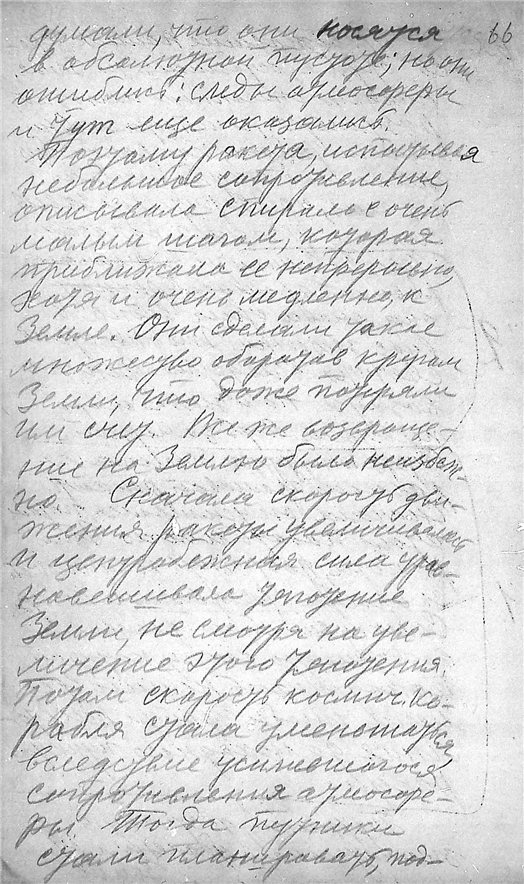 думали, что они носятся 66
в абсолютной пустоте; но они
ошиблись: следы атмосферы
и тут еще оказались.
Поэтому ракета, испытывая
небольшое сопротивление,
описывала спираль с очень
малым шагом, которая
приближала ее непрерывно,
хотя и очень медленно, к
Земле. Они сделали такое
множество оборотов кругом
Земли, что даже потеряли
им счет. Все же возвраще-
ние на Землю было неизбеж-
но. Сначала скорость дви-
жения ракеты увеличивалась
и центробежная сила урав-
навешивала тяготение
Земли, не смотря на уве-
личение этого тяготения.
Потом скорость космич. ко-
рабля стала уменьшаться
вследствие усилившегося
сопротивления атмосфе-
ры. Тогда путники
стали планировать, под-